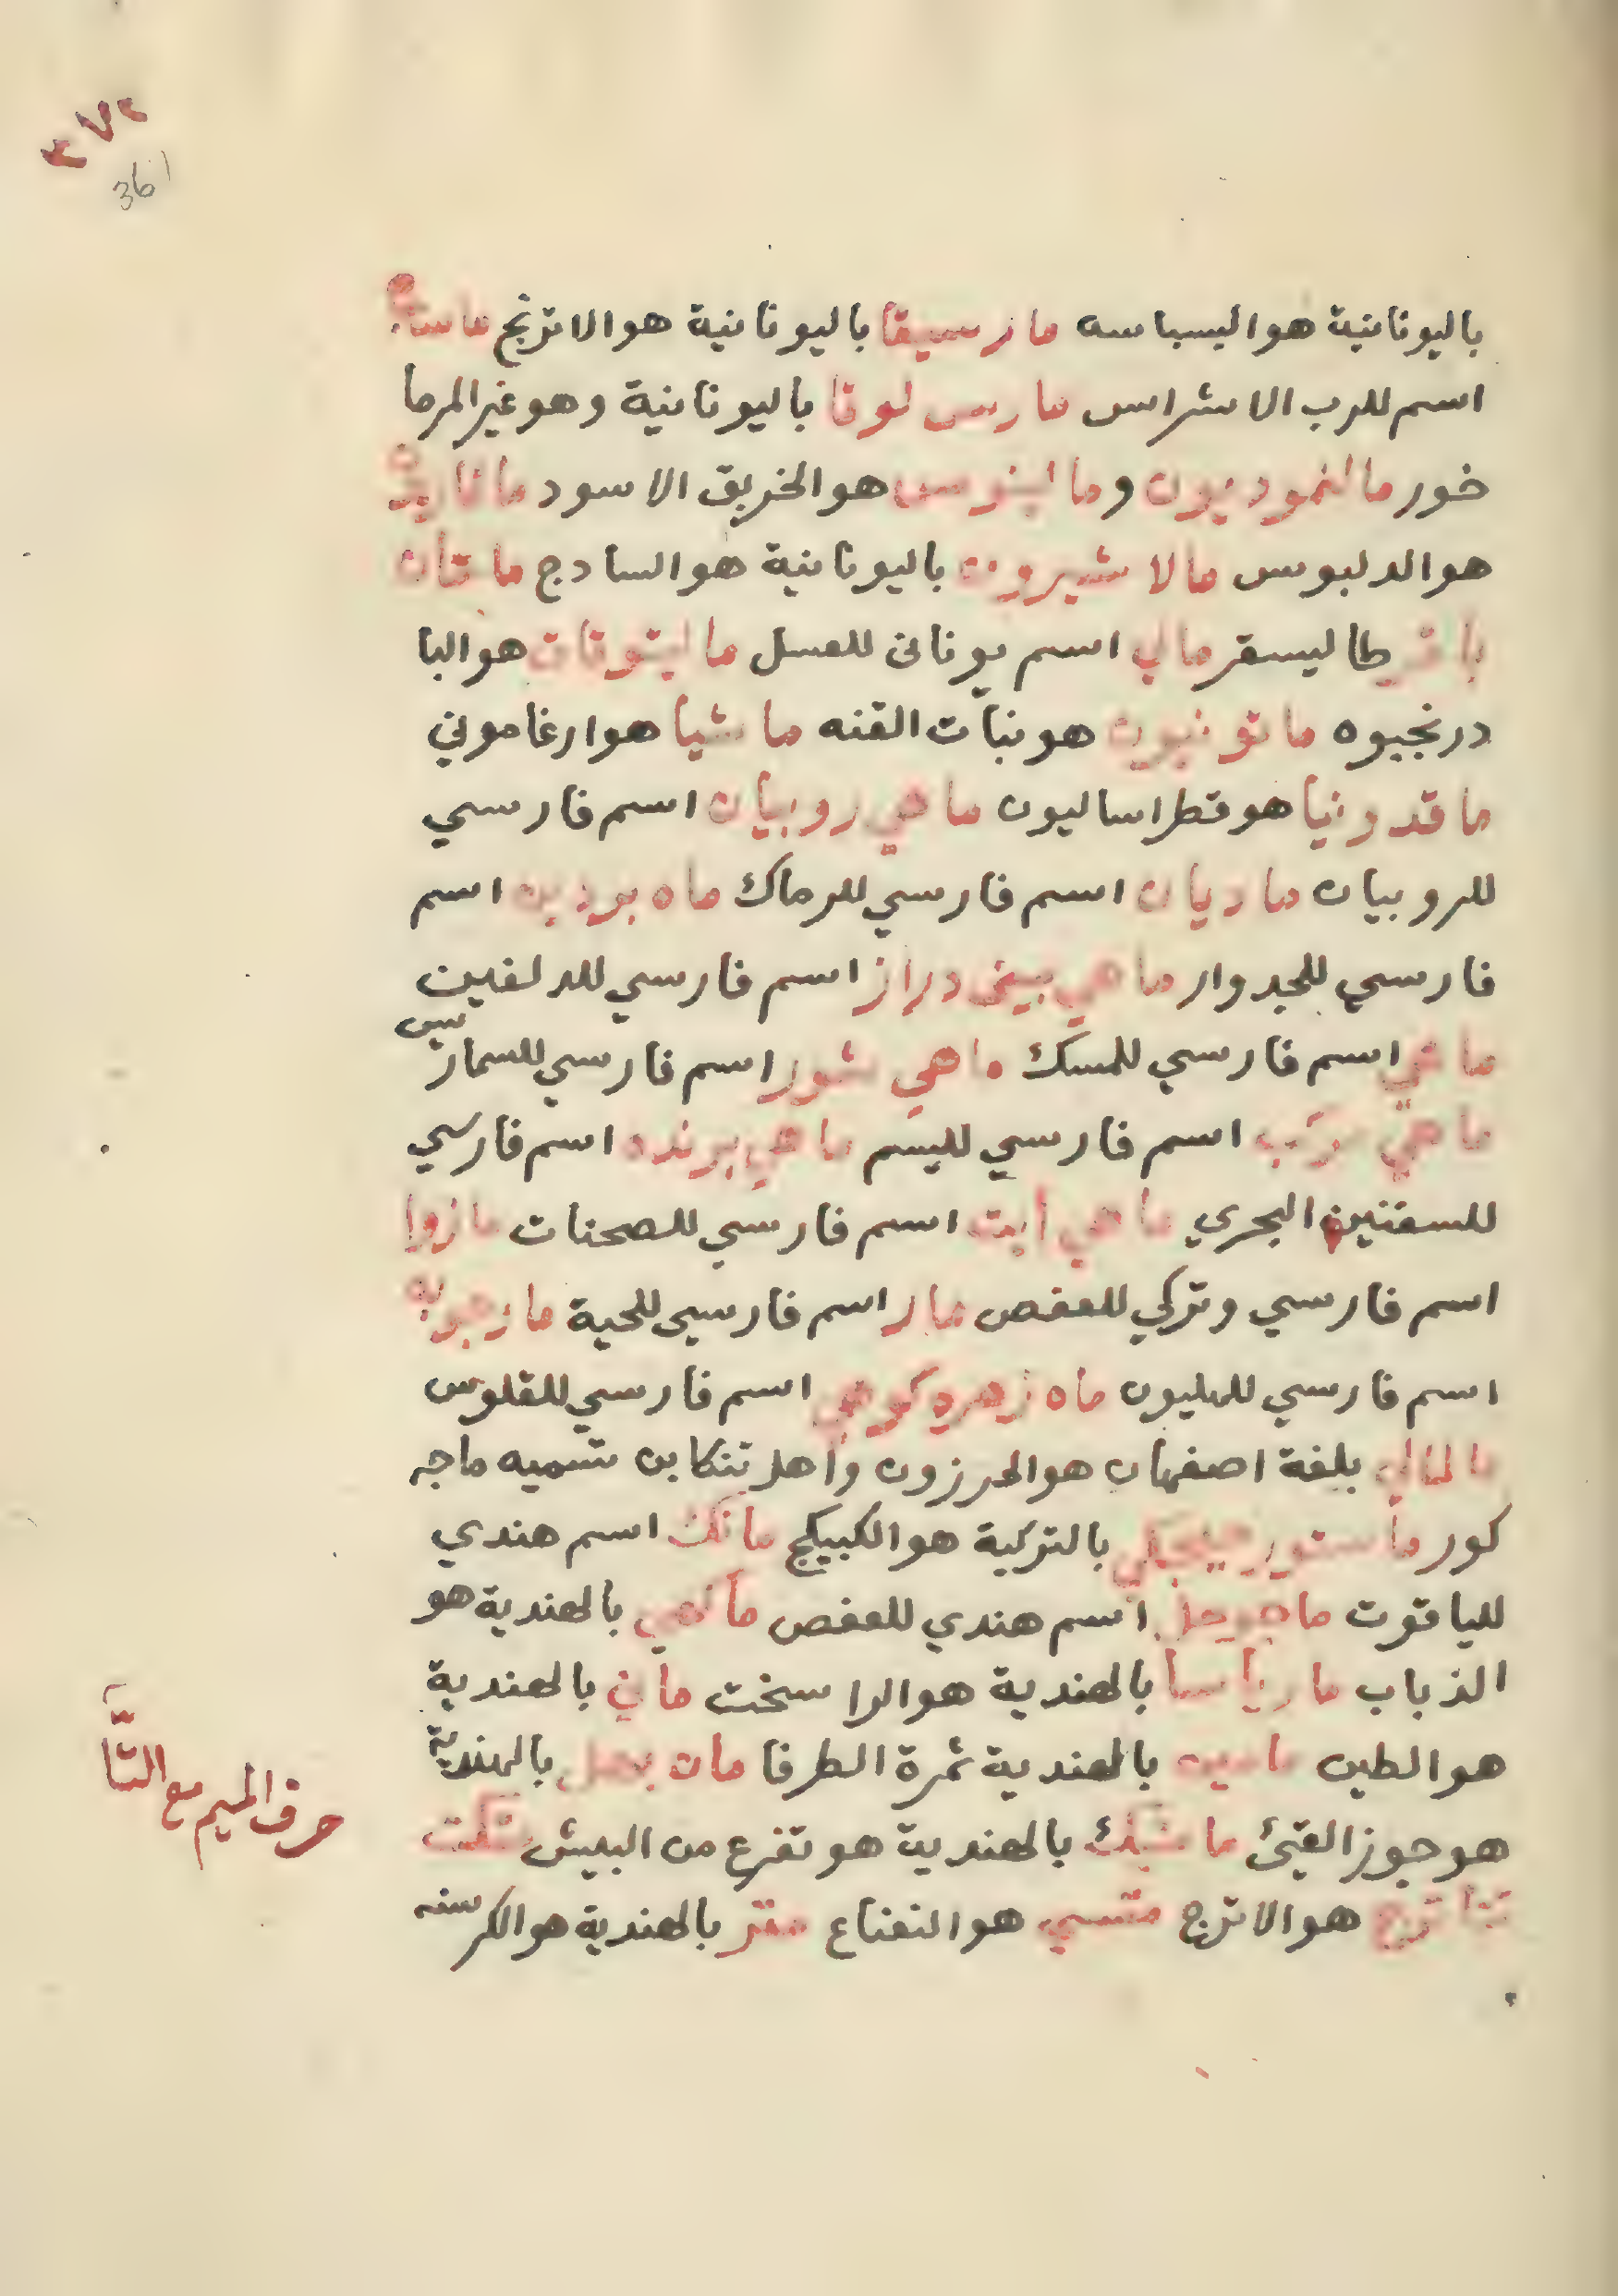 ٣٧٢
361
باليونانية هو البسباسه مارسيقا باليونانية هو الاترنج
اسم للرب الاشراس مارس لوقا باليونانية وهو غير المرما
خور مالنموديون وما لينوس هو الخربق الاسود
هو الدلبوس مالا شيرون باليونانية هو السادج
طاليسقر مالي اسم يوناني للعسل هو البا
درنجبوه هو نبات القنه ماشيا هو ارغاموني
ماقدونيا هو قطراساليون ماهي روبيان اسم فارسي
للروبيان ماديان اسم فارسي للرماك ماه بودين اسم
فارسي للجدوار ماهي بيني دراز اسم فارسي للدلفين
ماهي اسم فارسي للمسك ماهي شور اسم فارسي للسمار يس
ماهي اسم فارسي لليسم ماهي برنده اسم فارسي
للسفنين البحري ماهي ابت اسم فارسي للصحنات مازوا
اسم فارسي وتركي للعفص مار اسم فارسي للحية مارجوبه
اسم فارسي للهليون ماه زهره كوهي اسم فارسي للقلوس
بلغة اصفهان هو الحرزون واهل تنكابن تسميه ماجه
كور بالتركية هو الكبيكج مانك اسم هندي
للياقوت اسم هندي للعفص ماكهي بالهندية هو
الذباب مارياسا بالهندية هو الراسخت ماني بالهندية
هو الطين مامين بالهندية ثمرة الطرفا مان بهل بالهندية
هو جوز القيئ بالهندية هو تفرع من البيش متكت
هو الاترج هو النعناع متر بالهندية هو الكرسنه
حرف الميم مع التا